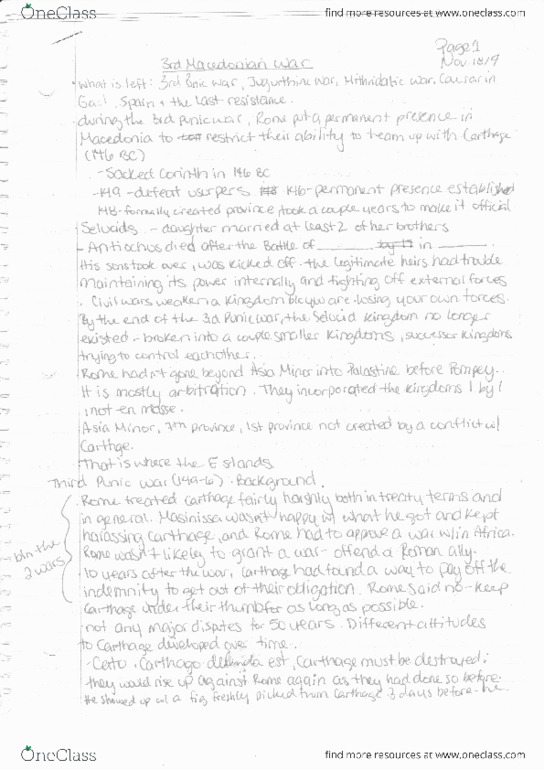 OneClass
find more resources at oneclass.com
Page 1
3rd Macedonian War
Nov. 18/9
What is left: 3rd Punic war, Jugurthine war, Mithridatic war, Caesar in
Gaul, Spain + the Last resistance.
during the 3rd punic war, Rome put a permanent presence in
Macedonia to restrict their ability to team up with Carthage
(146 BC)
- Sacked Corinth in 146 BC
- 149 - defeat usurpers 146 - permanent presence established
148 - formally created province, took a couple years to make it official
Selucids - daughter married at least 2 of her brothers
- Antiochus died after the Battle of ______ in ______.
His sons took over, was kicked off. the legitimate heirs had trouble
maintaining its power internally and fighting off external forces
. Civil wars weaken a kingdom b/c you are losing your own forces.
By the end of the 3rd Punic war, the Selucid kingdom no longer
existed - broken into a couple smaller kingdoms, successor kingdoms
trying to control eachother.
Rome hadn't gone beyond Asia Minor into Palastine before Pompey.
It is mostly arbitration. They incorporated the kingdoms 1 by 1
, not en masse.
Asia Minor, 7th province, 1st province not created by a conflict w/
Carthge.
That is where the E stands
Third Punic War (149-6) - Background.
Rome treated Carthage fairly harshly both in treaty terms and
in general. Masinissa wasn't happy w/ what he got and kept
harassing Carthage, and Rome had to approve a war w/in Africa.
Rome wasn't likely to grant a war - offend a Roman ally.
btn the
2 wars
10 years after the war, Carthage had found a way to pay off the
indemnity to get out of their obligation. Rome said no - keep
Carthage under their thumb for as long as possible.
not any major disputes for 50 years. Different attitudes
to Carthage developed over time.
- Cato, Carthago delenda est, Carthage must be destroyed;
they would rise up against Rome again as they had done so before.
he showed up w/ a fig freshly picked from Carthage 3 days before - he
OneClass
find more resources at oneclass.com